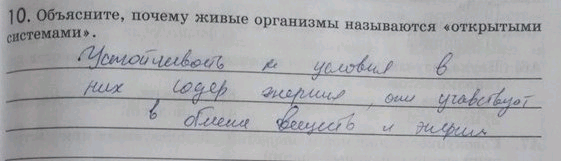 10. Объясните, почему живые организмы называются «открытыми
системами».
Устойчивость к условия в
них содер энергия, они учавствует
в обмена веществ и энергии